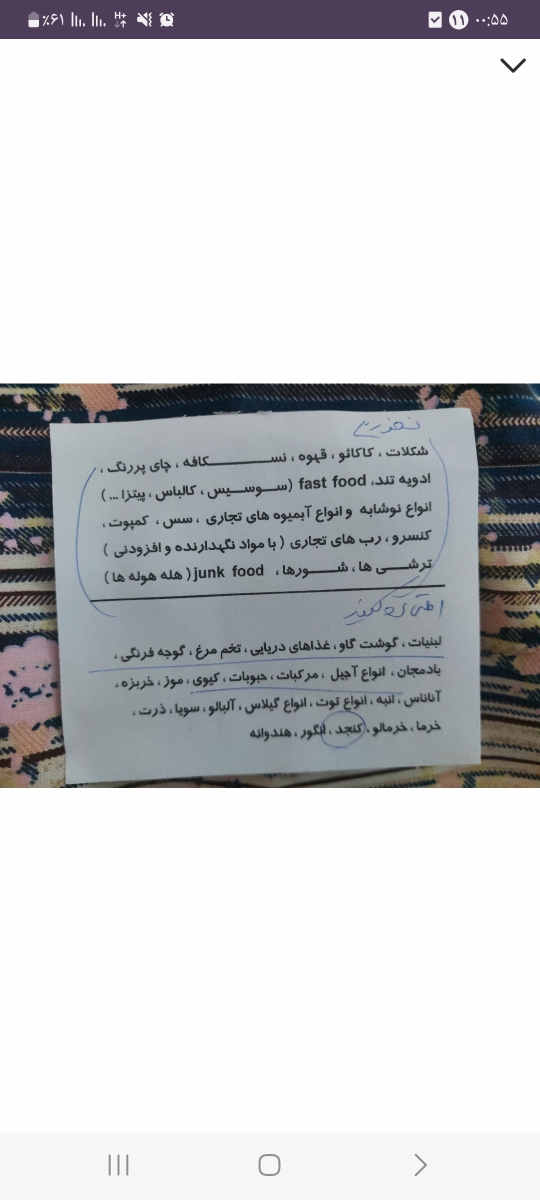 ٪۶۱
۱۱
۰۰:۵۵
نخورید
شکلات ، کاکائو ، قهوه ، نســـــکافه ، چای پررنگ ،
ادویه تند، fast food (ســوســیس ، کالباس ، پیتزا ... )
انواع نوشابه و انواع آبمیوه های تجاری ، سس ، کمپوت ،
کنسرو ، رب های تجاری ( با مواد نگهدارنده و افزودنی )
ترشــی ها ، شـــورها ، junk food ( هله هوله ها )
لبنیات ، گوشت گاو ، غذاهای دریایی ، تخم مرغ ، گوجه فرنگی ،
بادمجان ، انواع آجیل ، مرکبات ، حبوبات ، کیوی ، موز ، خربزه ،
آناناس ، انبه ، انواع توت ، انواع گیلاس ، آلبالو ، سویا ، ذرت ،
خرما ، خرمالو ، کنجد ، انگور ، هندوانه